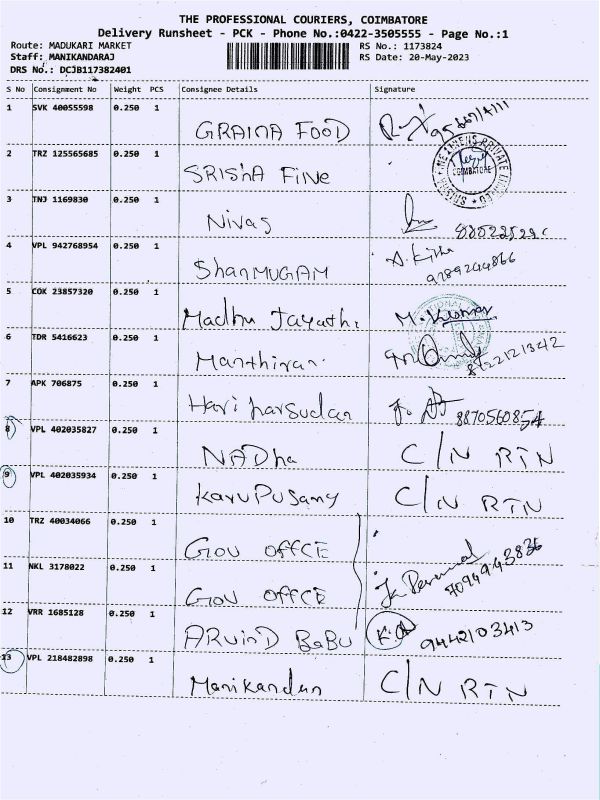 THE PROFESSIONAL COURIERS, COIMBATORE
Delivery Runsheet - PCK - Phone No.:0422-3505555 - Page No.:1
Route: MADUKARI MARKET RS No.: 1173824
Staff: MANIKANDARAJ RS Date: 20-May-2023
DRS No.: DCJB117382401
S No Consignment No Weight PCS Consignee Details Signature
1 SVK 40055598 0.250 1 GRAINA FOOD
2 TRZ 125565685 0.250 1 SRISHA FINE COIMBATORE
3 TNJ 1169830 0.250 1 Nivas
4 VPL 942768954 0.250 1 ShanMUGAM 9789244866
5 COK 23857320 0.250 1 Madhu Jayathi M. Kumar
6 TDR 5416623 0.250 1 Manthiran
7 APK 706875 0.250 1 Hari harsudan 8870560854
8 VPL 402035827 0.250 1 NADha C/N RTN
9 VPL 402035934 0.250 1 KaruPusamy C/N RTN
10 TRZ 40034066 0.250 1 Gov offCE
11 NKL 3178022 0.250 1 Gov offCE 7094943836
12 VRR 1685128 0.250 1 ARvinD BaBu 9442103413
13 VPL 218482898 0.250 1 Manikandan C/N RTN